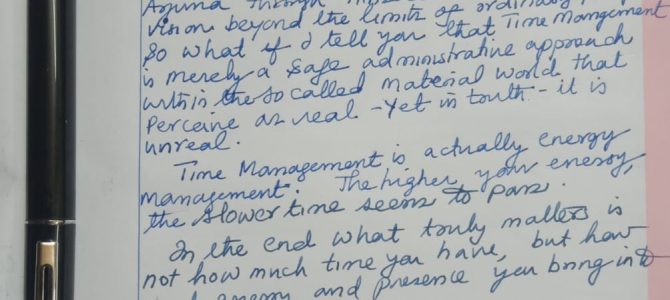 Arjuna through
vision beyond the limits of ordinary
So what if I tell you that Time Mangement
is merely a safe administrative approach
within the so called material world that
Perceive as real - Yet in truth - it is
unreal.
Time Management is actually energy
management. The higher your energy,
the slower time seems to pass.
In the end what truly matters is
not how much time you have, but how
energy and presence you bring into